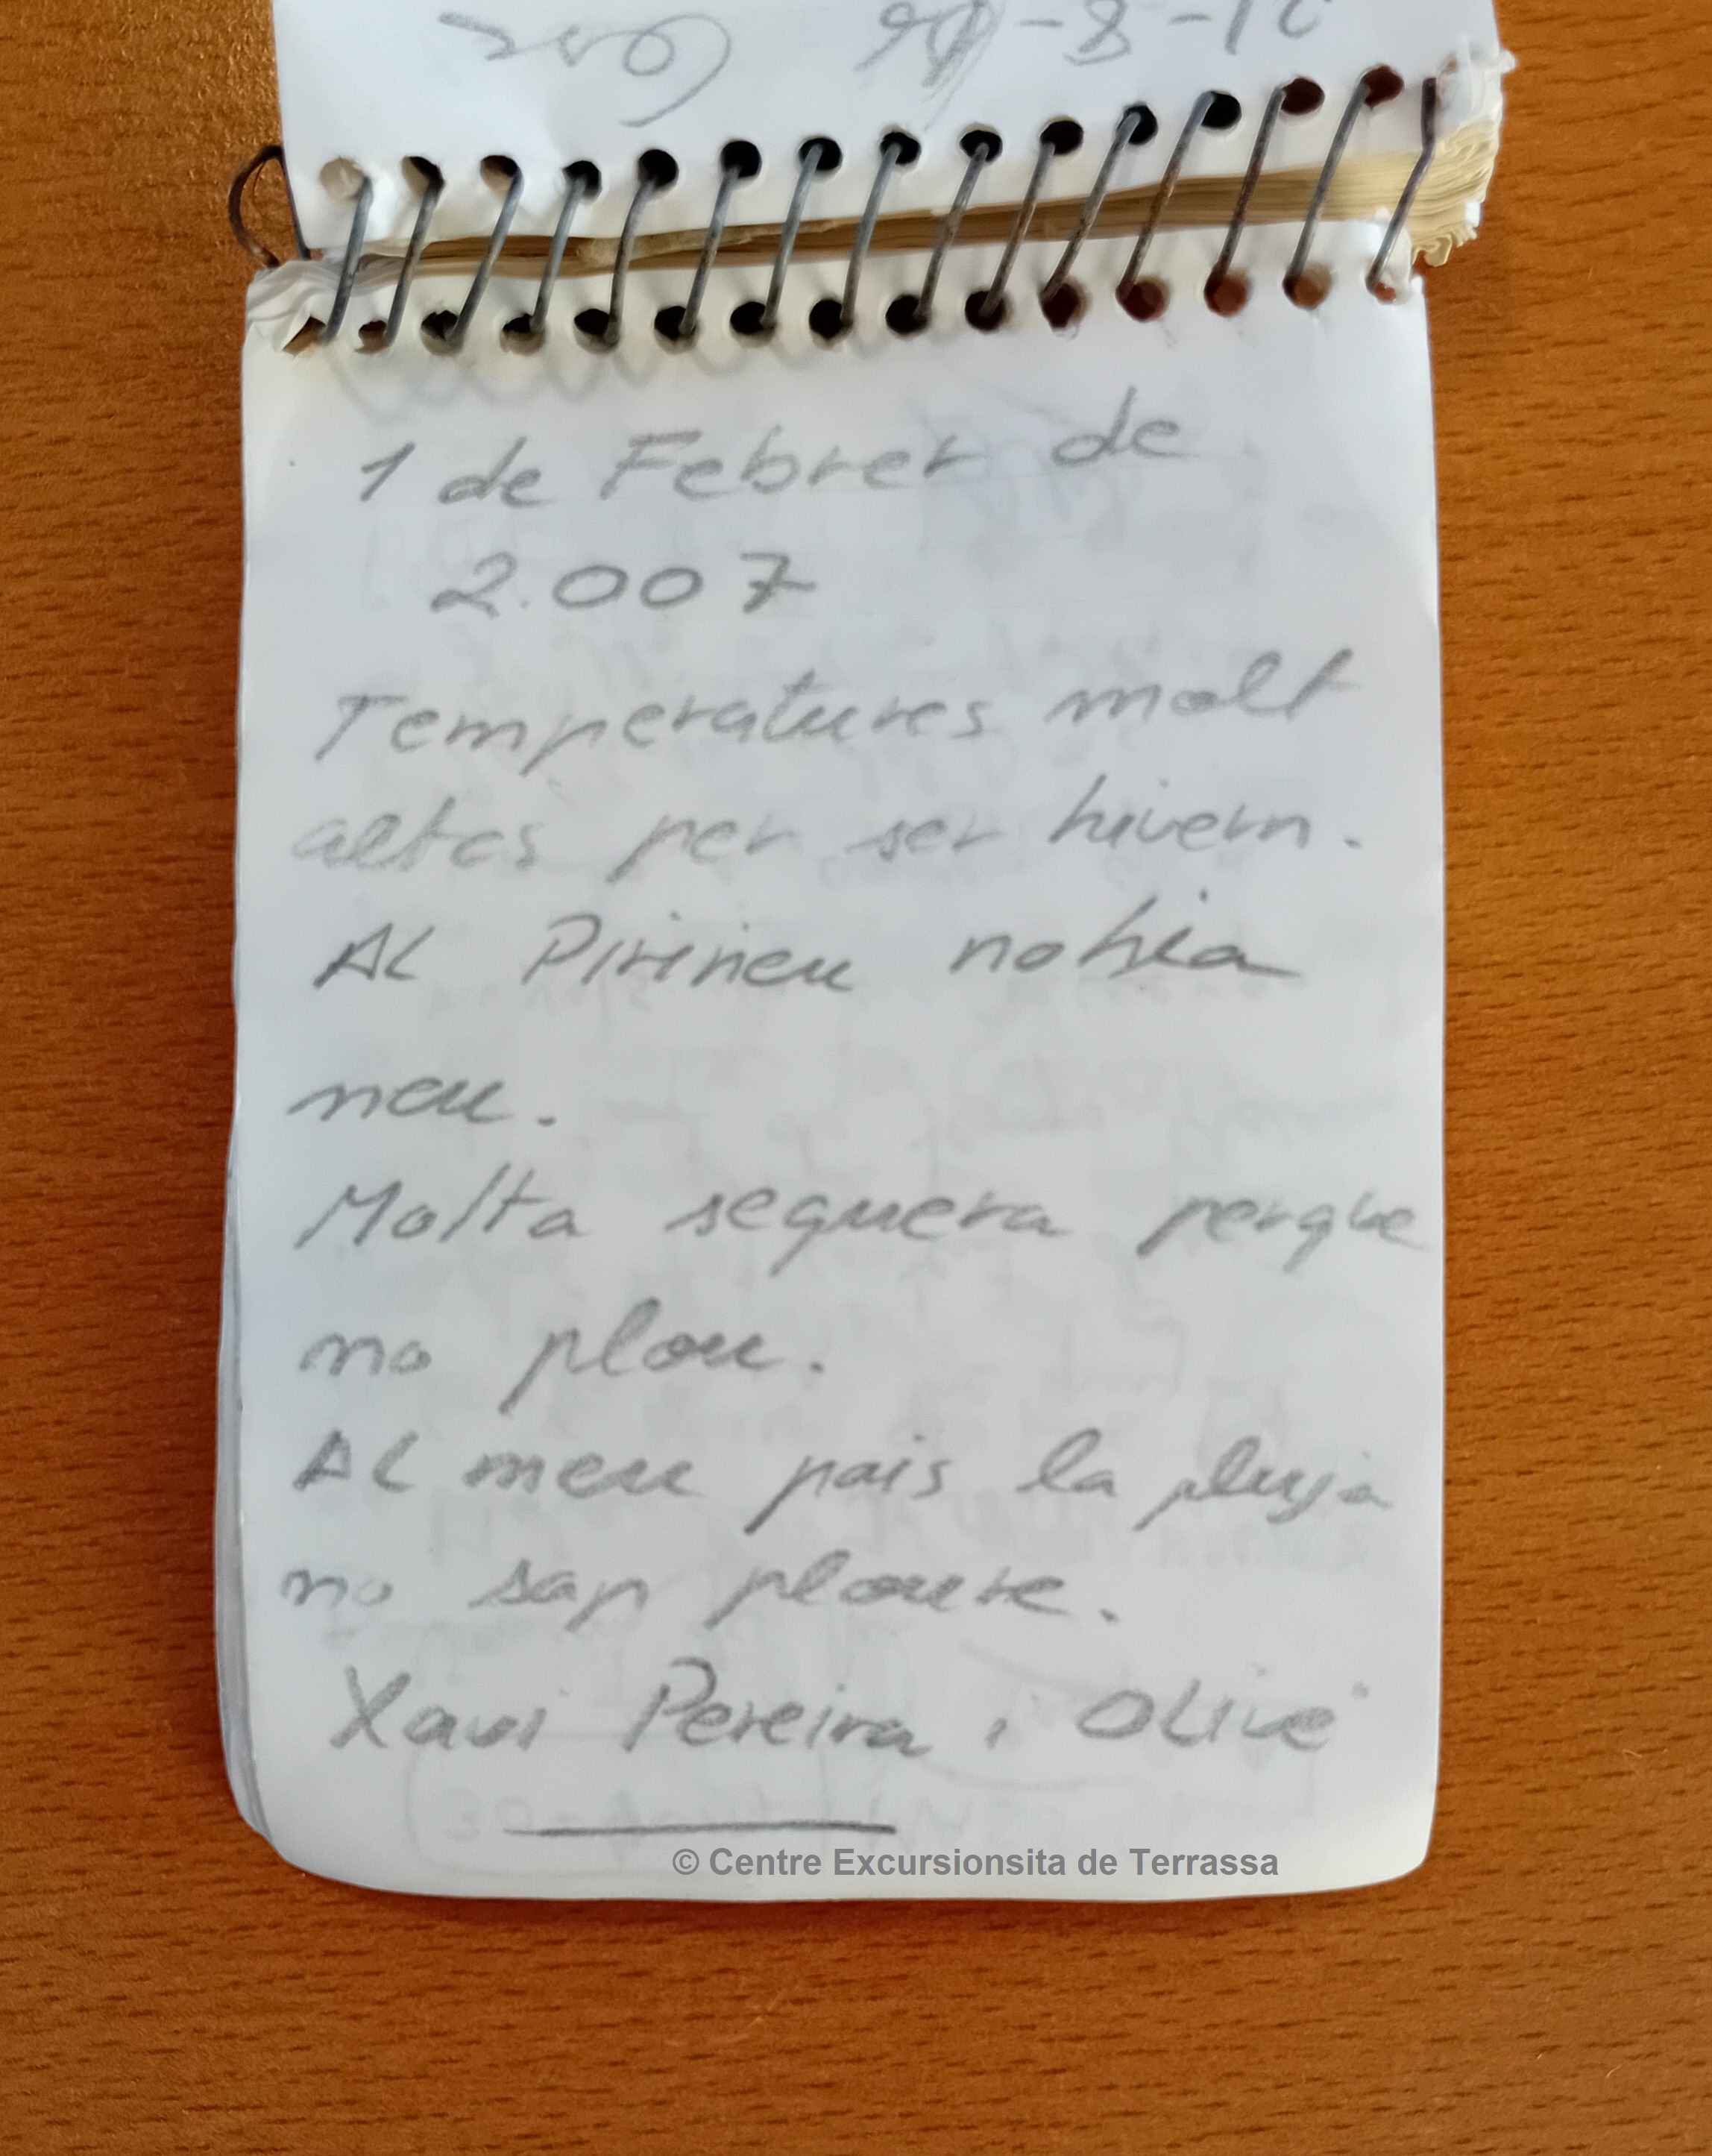 1 de Febrer de
2.007
Temperatures molt
altes per ser hivern.
AL Pirineu nohia
neu.
Molta sequera perque
no plou.
AL meu pais la pluja
no sap ploure.
Xavi Pereira i Olivé
© Centre Excursionsita de Terrassa